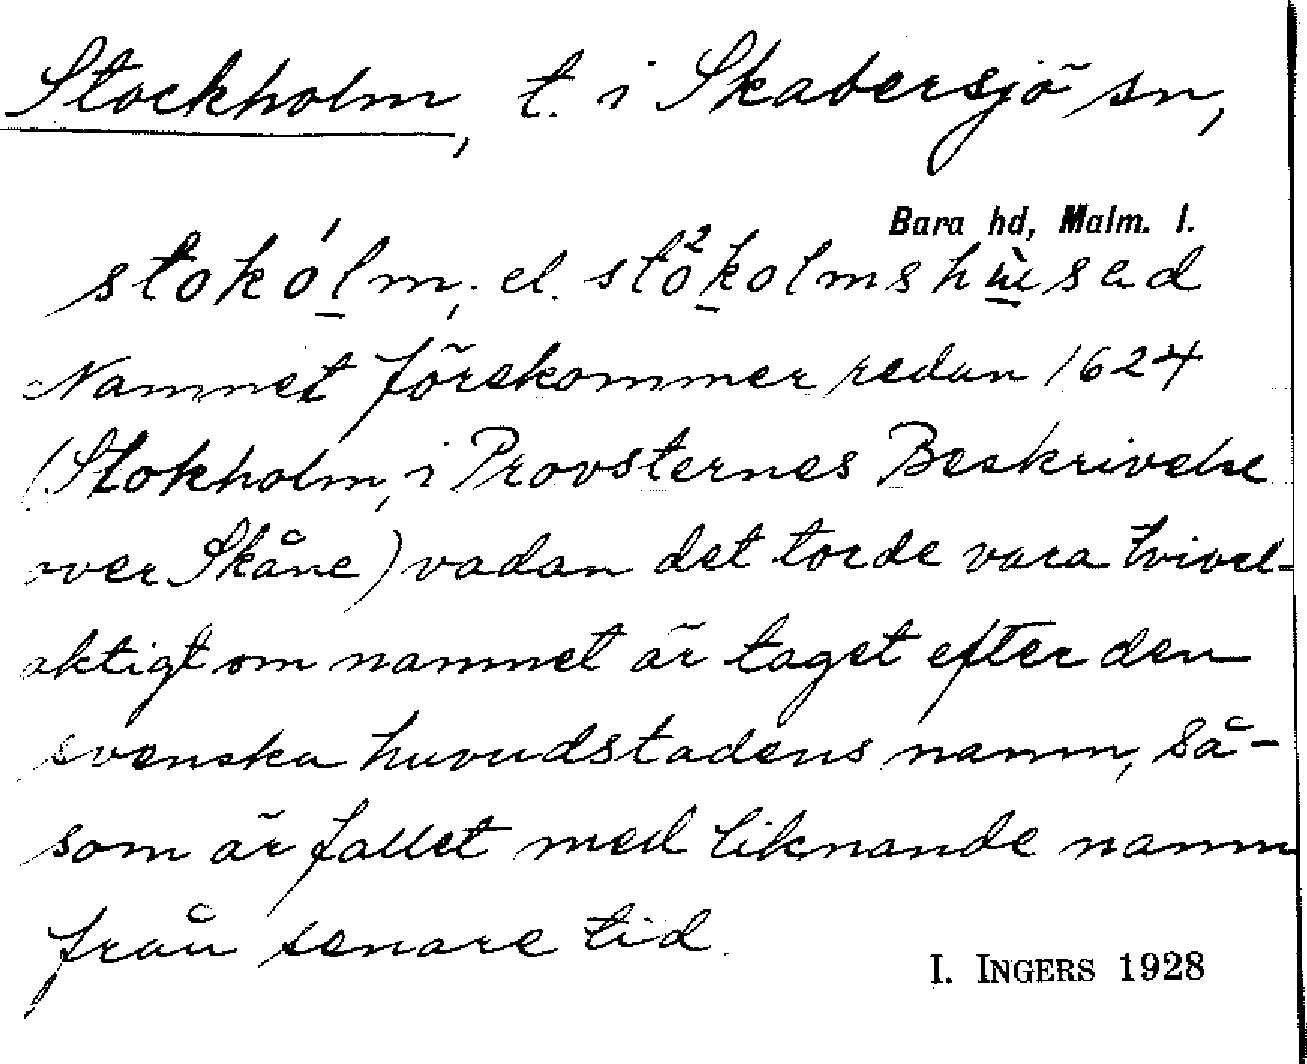 Stockholm, t. i Skabersjö sn,
Bara hd, Malm. l.
stokólm, el. stò²kolmshùsad
Namnet förekommer redan 1624
(Stokholm, i Provsternes Beskrivelse
over Skåne) vadan det torde vara tvivel-
aktigt om namnet är taget efter den
svenska huvudstadens namn, så-
som är fallet med liknande namn
från senare tid.
I. INGERS 1928